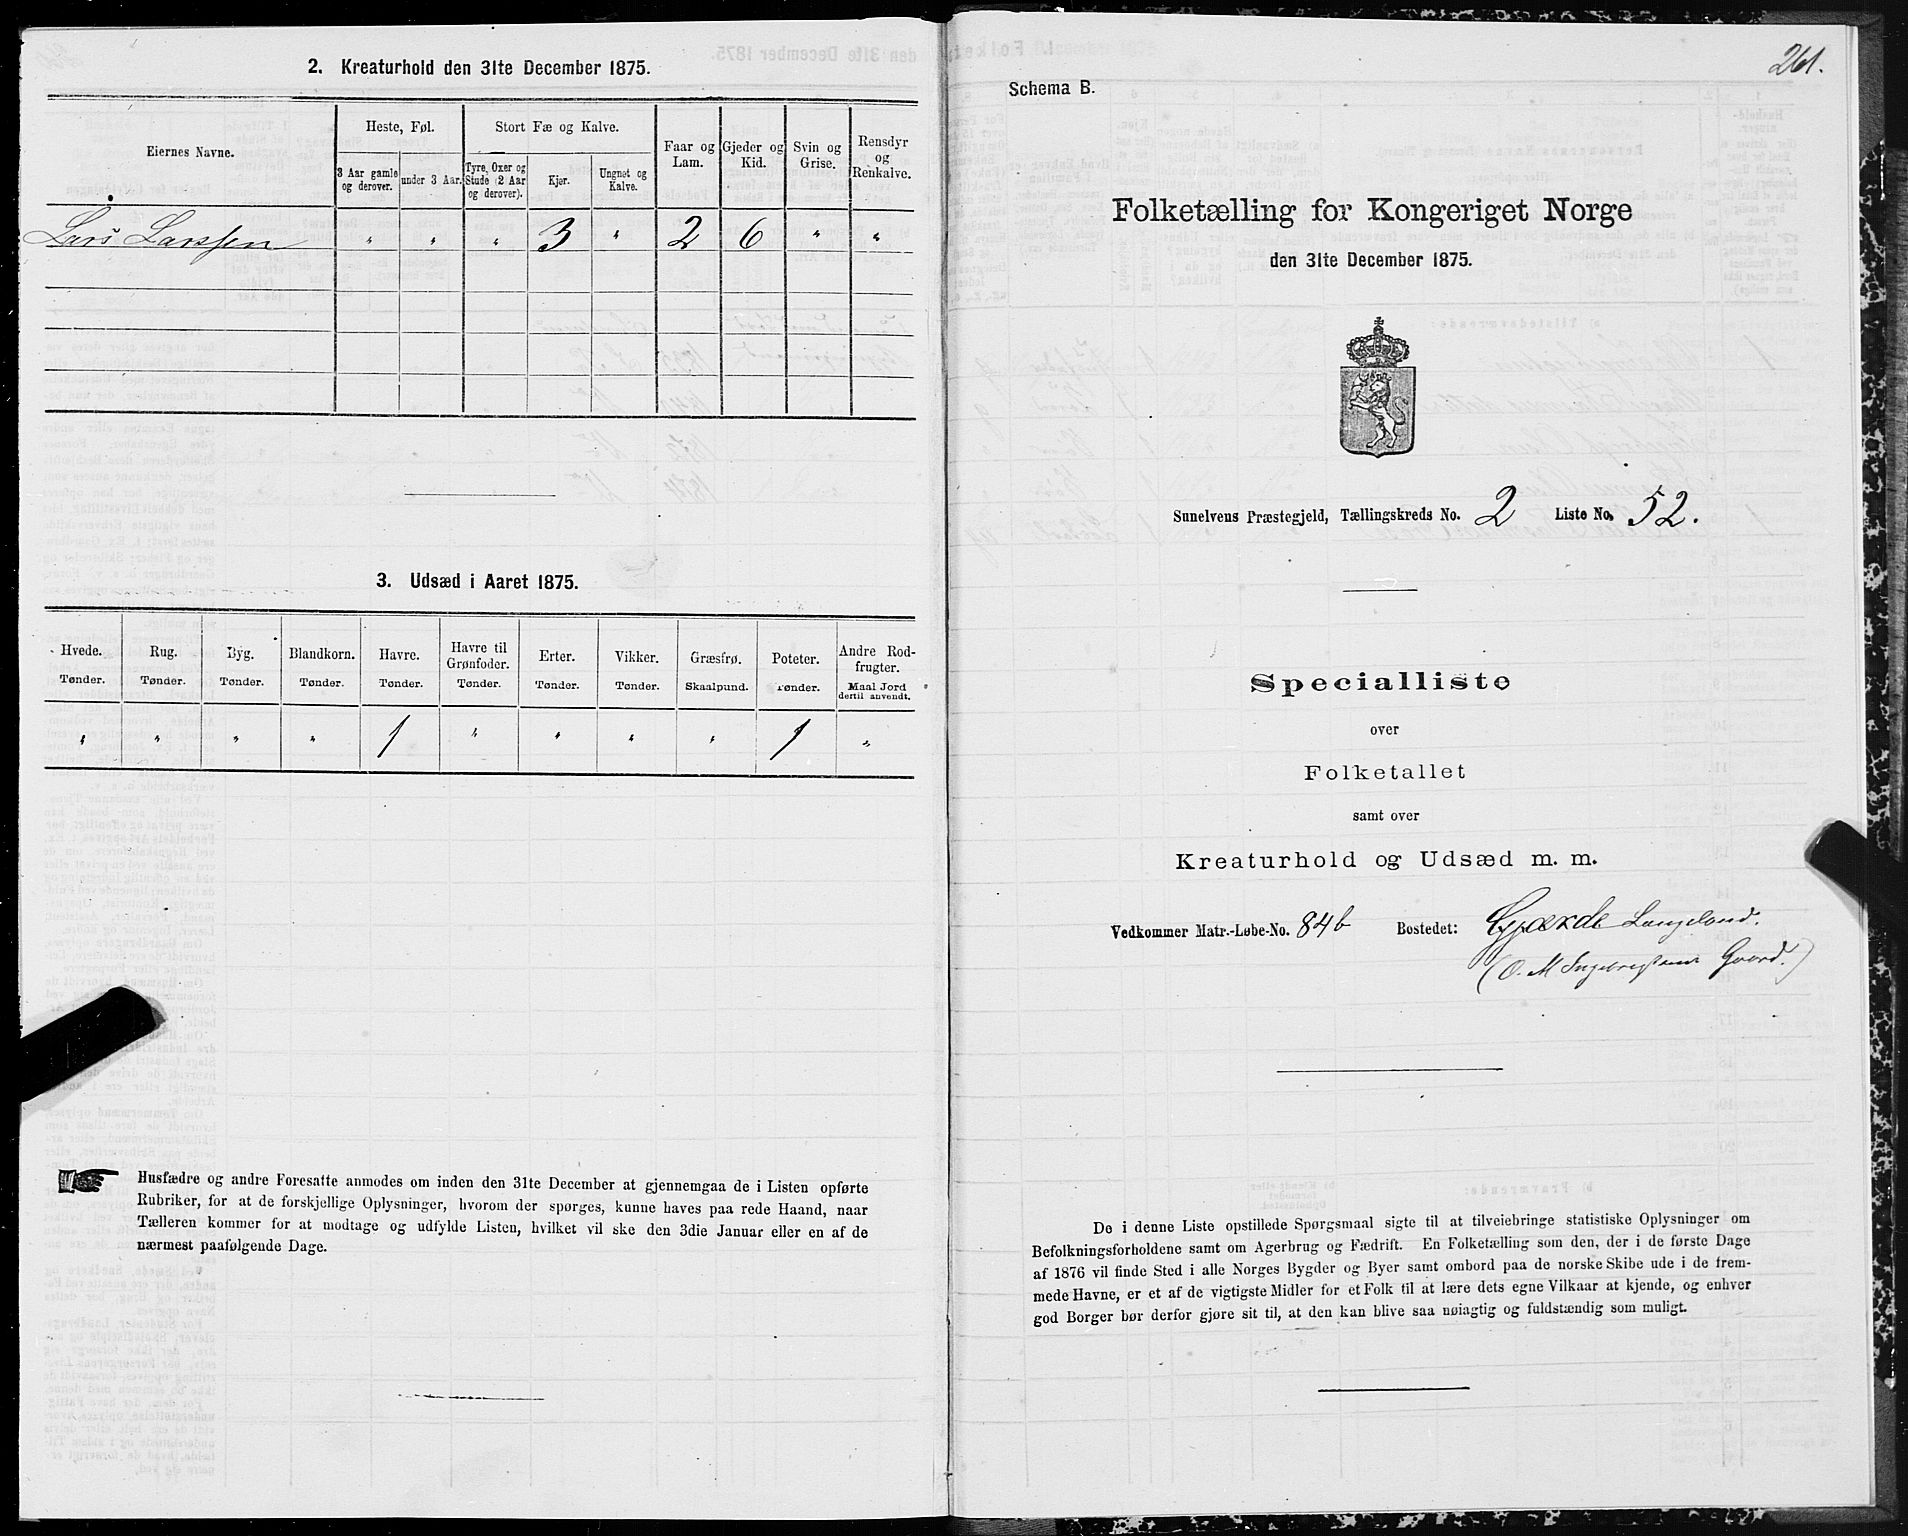 2. Kreaturhold den 31te December 1875.
Eiernes Navne.
Heste, Føl.
Stort Fæ og Kalve.
Faar og Lam.
Gjeder og Kid.
Svin og Grise.
Rensdyr og Renkalve.
3 Aar gamle og derover.
under 3 Aar.
Tyre, Oxer og Stude (2 Aar og derover).
Kjør.
Ungnøt og Kalve.
Lars Larssen " " " 3 " 2 6 " "
3. Udsæd i Aaret 1875.
Hvede. Rug. Byg. Blandkorn. Havre. Havre til Grønfoder. Erter. Vikker. Græsfrø. Poteter. Andre Rodfrugter.
Tønder. Tønder. Tønder. Tønder. Tønder. Tønder. Tønder. Tønder. Skaalpund. Tønder. Maal Jord dertil anvendt.
" " " " 1 " " " " 1 "
Husfædre og andre Foresatte anmodes om inden den 31te December at gjennemgaa de i Listen opførte
Rubriker, for at de forskjellige Oplysninger, hvorom der spørges, kunne haves paa rede Haand, naar
Tælleren kommer for at modtage og udfylde Listen, hvilket vil ske den 3die Januar eller en af de
nærmest paafølgende Dage.
261.
Schema B.
Folketælling for Kongeriget Norge
den 31te December 1875.
Sunelvens Præstegjeld, Tællingskreds No. 2 Liste No. 52.
Specialliste
over
Folketallet
samt over
Kreaturhold og Udsæd m. m.
Vedkommer Matr.-Løbe-No. 84b Bostedet: Gjærde Langeland.
(O. M Ingebrigtsens Gaard.)
De i denne Liste opstillede Spørgsmaal sigte til at tilveiebringe statistiske Oplysninger om
Befolkningsforholdene samt om Agerbrug og Fædrift. En Folketælling som den, der i de første Dage
af 1876 vil finde Sted i alle Norges Bygder og Byer samt ombord paa de norske Skibe ude i de frem-
mede Havne, er et af de vigtigste Midler for et Folk til at lære dets egne Vilkaar at kjende, og enhver
god Borger bør derfor gjøre sit til, at den kan blive saa nøiagtig og fuldstændig som muligt.